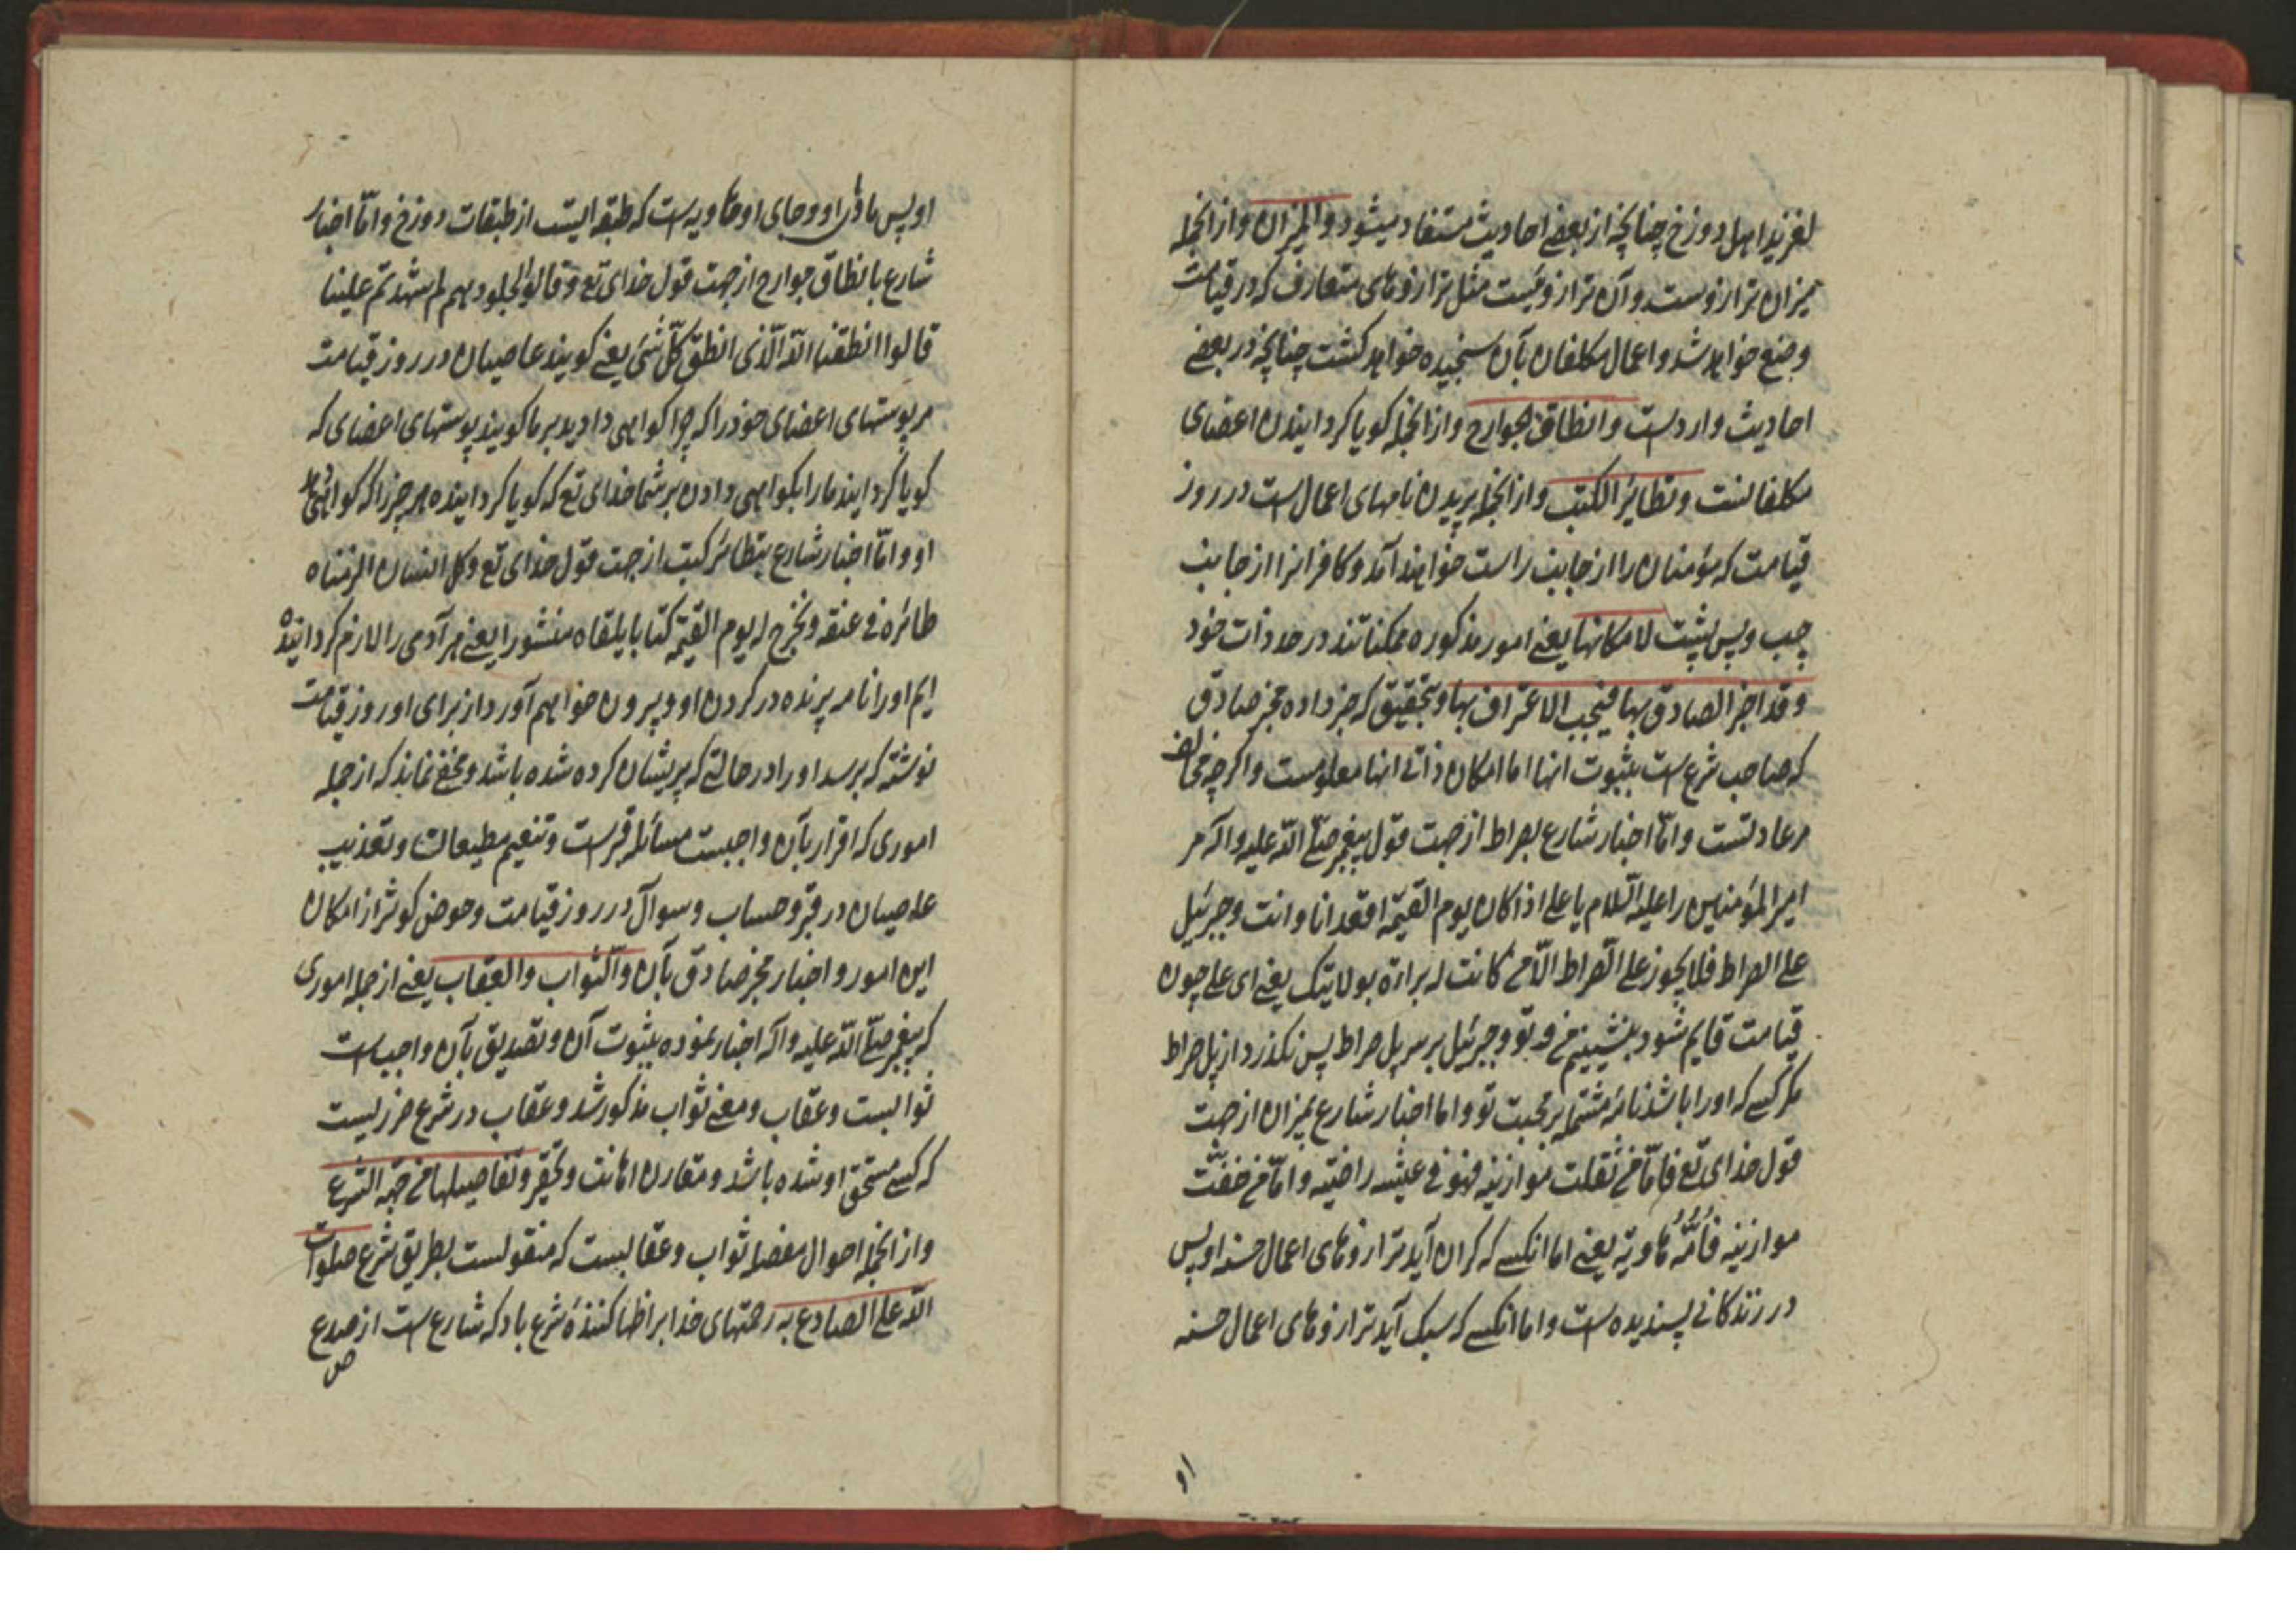 لغزند اهل دوزخ چنانچه از بعضی احادیث مستفاد میشود والمیزان و از انجمله
میزان ترازوست و آن ترازوئیست مثل ترازوهای متعارف که در قیامت
وضع خواهد شد و اعمال مکلفان بآن سنجیده خواهد کشت چنانچه در بعضی
احادیث واردست وانطاق الجوارح و از انجمله کویا کردانیدن اعضای
مکلفانست وتطایر الکتب و از انجمله پریدن نامهای اعمال است در روز
قیامت که مؤمنان را از جانب راست خواهند آمد و کافرانرا از جانب
چپ و پس پشت لامکانها یعنی امور مذکوره ممکناتند در حد ذات خود
وقد اخبر الصادق بها فیجب الاعتراف بها و بتحقیق که خبر داده مخبر صادق
که صاحب شرع است بثبوت انها اما امکان ذاتی انها معلومست و اکرچه مخالف
مر عادتست و امّا اخبار شارع بصراط از جهت قول پیغمبر صلّی اللّه علیه و اله مر
امیر المؤمنین را علیه السّلام یا علی اذا کان یوم القیمة اقعد انا و انت و جبرئیل
علی الصراط فلا یجوز علی الصّراط الّا من کانت له براءة بولایتک یعنی ای علی چون
قیامت قایم شود بنشینیم من و تو و جبرئیل بر سر پل صراط پس نکذرد از پل صراط
مکر کسی که او را باشد نامهٔ مشتمل بر محبت تو و اما اخبار شارع بمیزان از جهت
قول خدای تع فامّا من ثقلت موازینه فهو فی عیشه راضیّه و امّا من خفّت
موازینه فأُمُّهُ هاویة یعنی اما انکسی که کران آید ترازوهای اعمال حسنه او پس
در زندکانی پسندیده است و اما انکسی که سبک آید ترازوهای اعمال حسنه
او
او پس مادر او و جای او هاویه است که طبقه ایست از طبقات دوزخ و امّا اخبار
شارع بانطاق جوارح از جهت قول خدای تع و قالوا لجلودهم لم شهدتم علینا
قالوا انطقنا اللّه الّذی انطق کلّ شئ یعنی کویند عاصیان در روز قیامت
مر پوستهای اعضای خود را که چرا کواهی دادید بر ما کویند پوستهای اعضای که
کویا کردانید ما را بکواهی دادن بر شما خدای تع که کویا کردانیده هر چیز را که کواهی
او و امّا اخبار شارع بتطائر کتب از جهت قول خدای تع و کل انسان الزمناه
طائره فی عنقه و نخرج له یوم القیمة کتابا یلقاه منشورا یعنی هر آدمی را لازم کردانیده
ایم او را نامه پرنده در کردن او و بیرون خواهیم آورد از برای او روز قیامت
نوشته که برسد او را در حالتی که پریشان کرده شده باشد و مخفی نماند که از جمله
اموری که اقرار بآن واجبست مسائله قبر است و تنعیم مطیعان و تعذیب
عاصیان در قبر و حساب و سوال در روز قیامت و حوض کوثر از امکان
این امور و اخبار مخبر صادق بآن والثّواب والعقاب یعنی از جمله اموری
که پیغمبر صلّی اللّه علیه و اله اخبار نموده بثبوت آن و تصدیق بآن واجب است
ثوابست و عقاب و معنی ثواب مذکور شد و عقاب در شرع ضرریست
که کسی مستحق او شده باشد و مقارن اهانت و تحقیر وتفاصیلها من جهة الشرع
و از انجمله احوال مفصل ثواب و عقابست که منقولست بطریق شرع صلوات
اللّه علی الصادع به رحمتهای خدا بر اظهار کنندهٔ شرع باد که شارع است از صدع
ص